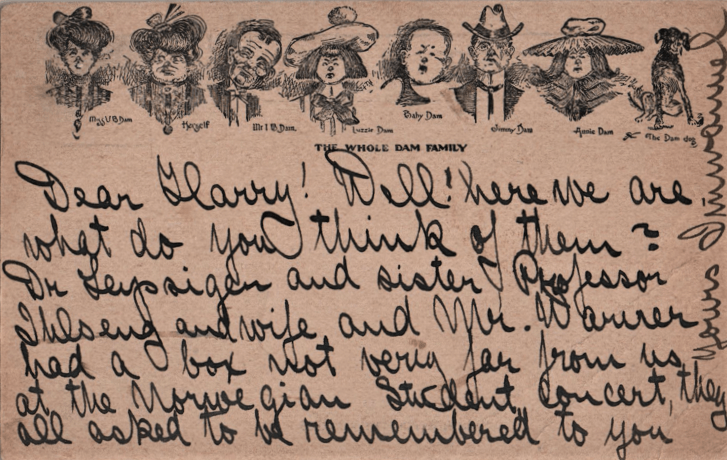 Miss U.B. Dam
Herself
Mr I.B. Dam.
Lizzie Dam
Baby Dam
Jimmy Dam
Annie Dam
The Dam dog
THE WHOLE DAM FAMILY
Dear Harry! Well! here we are
what do you think of them?
Dr Leipsiger and sister Professor
Ihlseng and wife and Mr. Warner
had a box not very far from us
at the Norwegian Student Concert, they
all asked to be remembered to you
Yours Immanuel